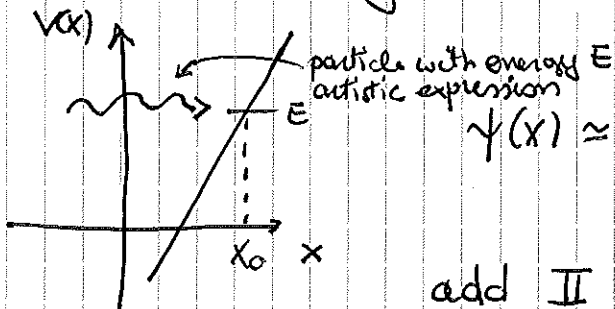 V(x)
particle with energy E
artistic expression
E
ψ(x) ≃
x₀ x
add II